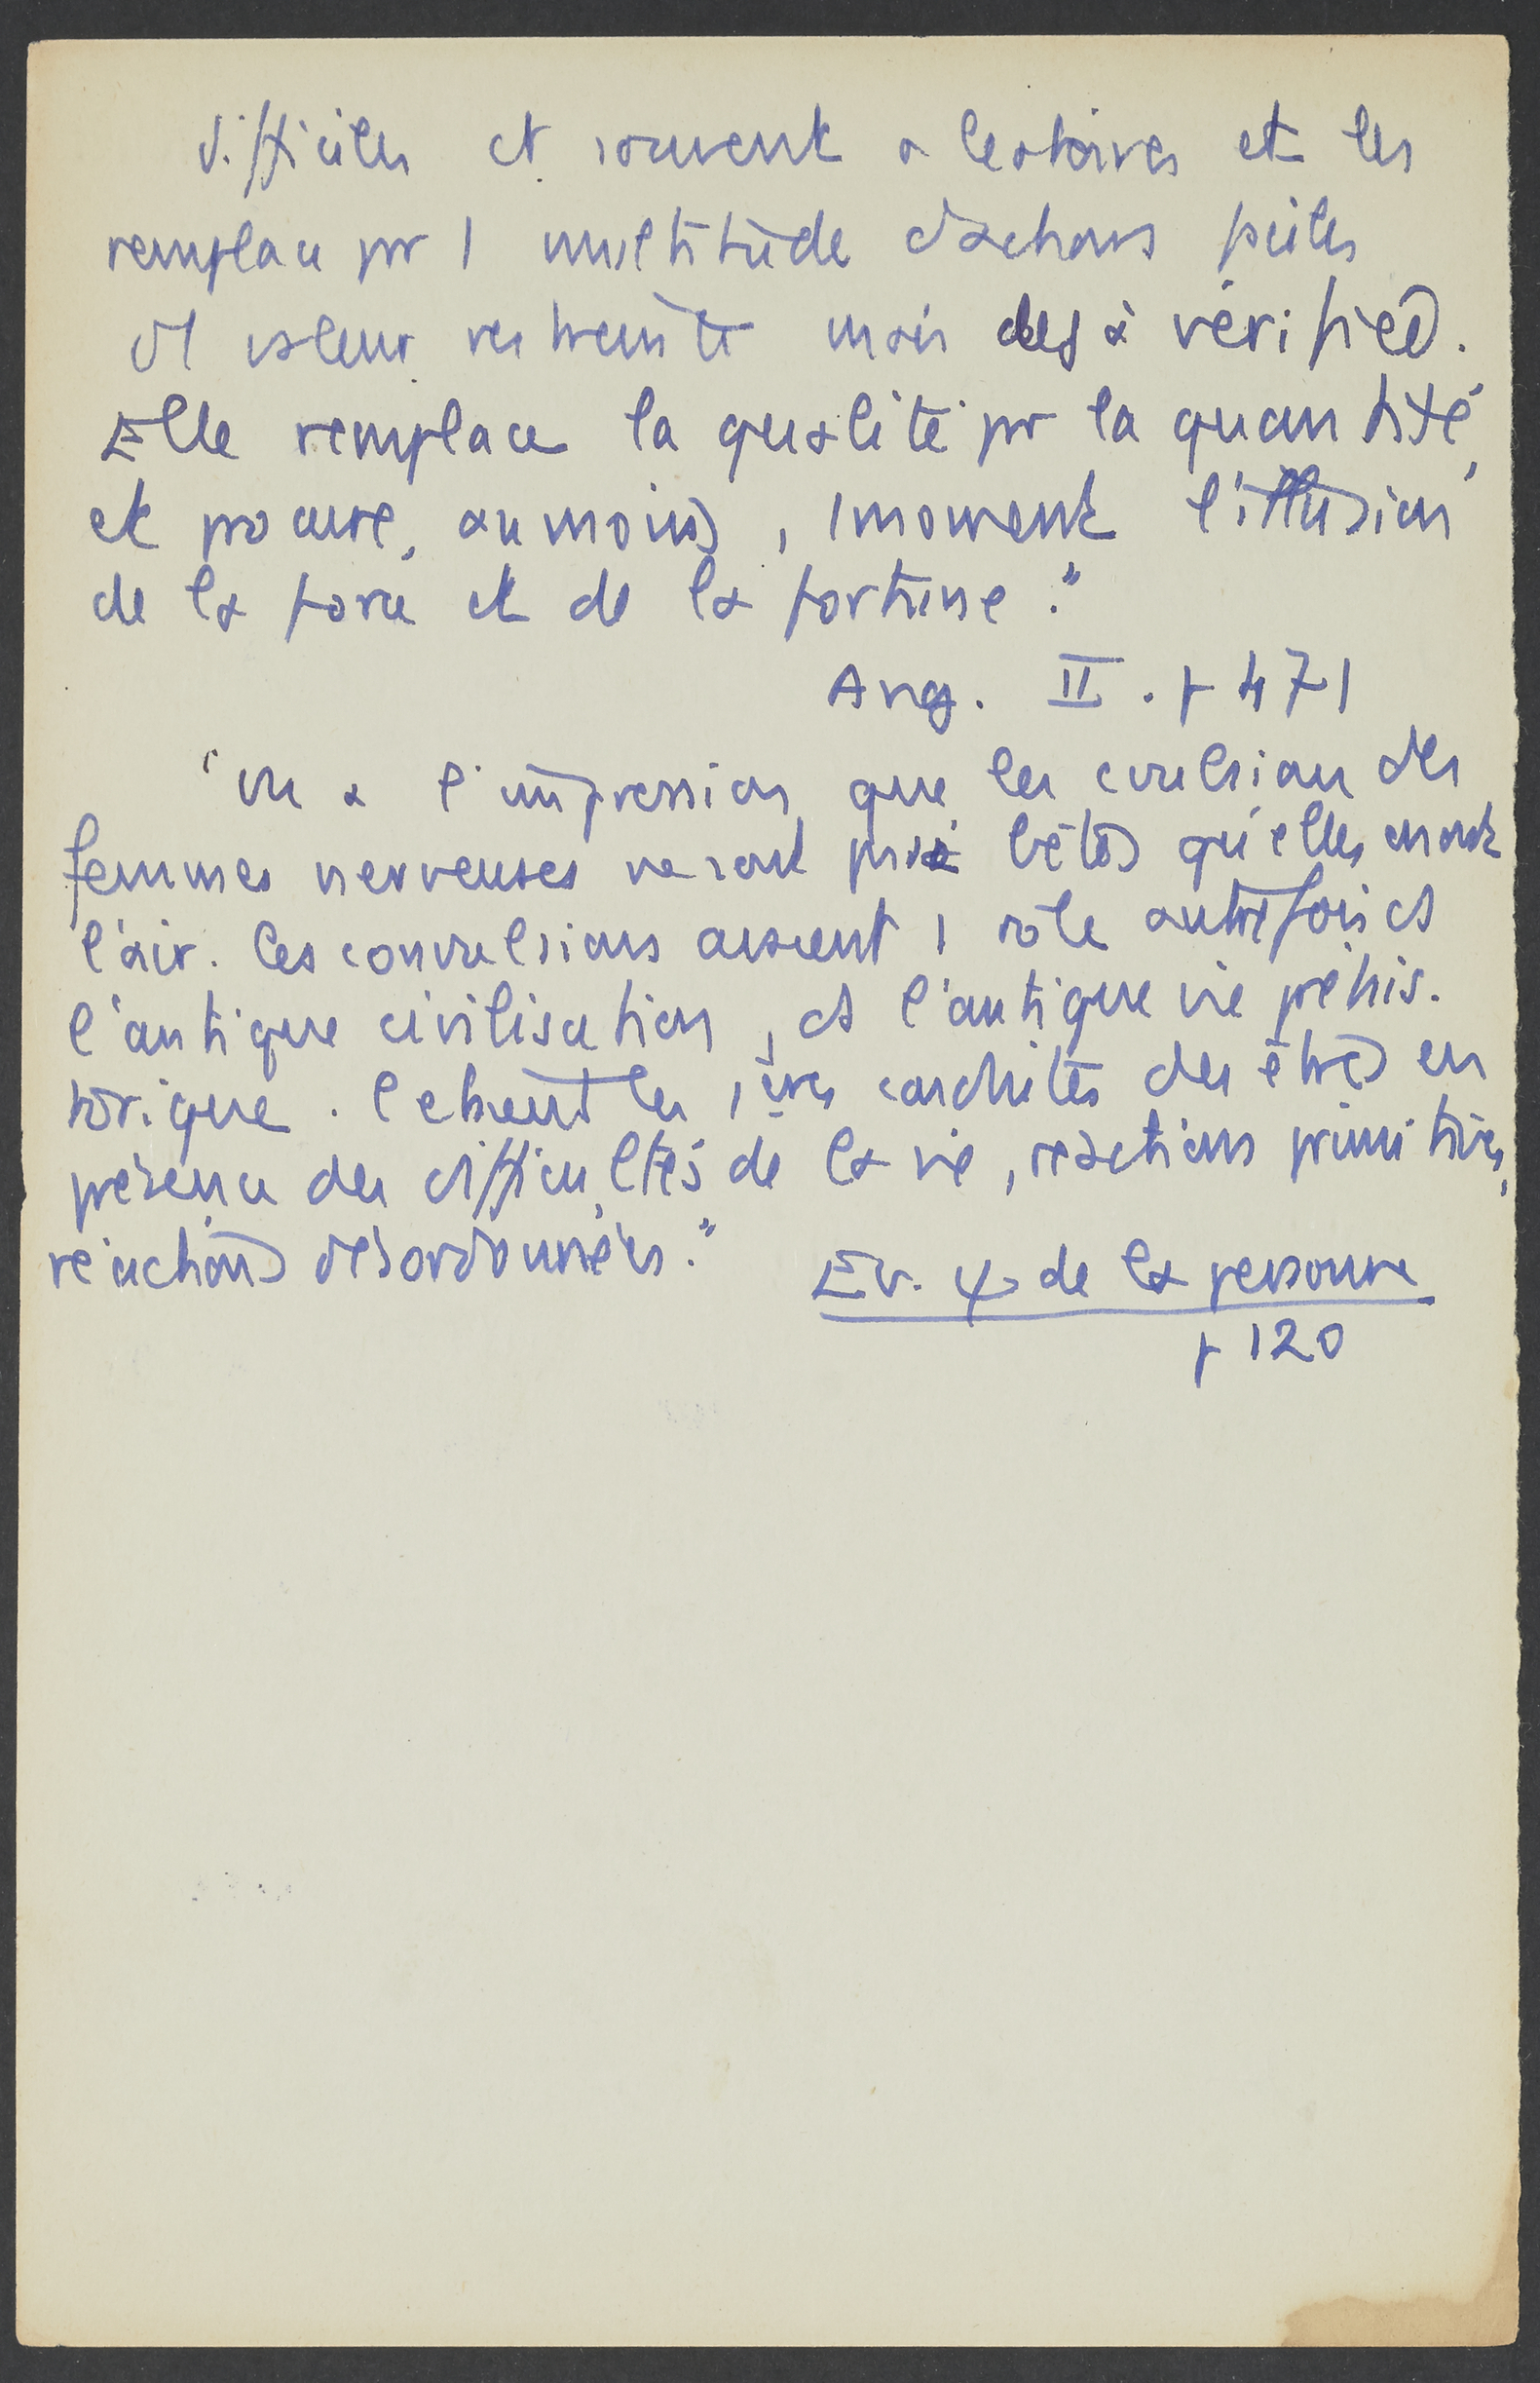 difficiles et souvent aleatoires et les
remplace pr 1 multitude d'actions faciles
et valeur restreinte mais deja verifiee.
Elle remplace la qualité pr la quantité,
et procure, au moins, 1 moment l'illusion
de la force et de la fortune."
Ang. II. p 471
"On a l'impression que les convulsions des
femmes nerveuses ne sont pas bêtes qu'elles en ont
l'air. Ces convulsions avaient 1 rôle autrefois ds
l'antique civilisation, ds l'antique vie préhis-
torique. C'etaient les 1ères conduites des êtres en
présence des difficultés de la vie, réactions primitives,
réactions désordonnées."
Ev. ψ de la personne
p 120